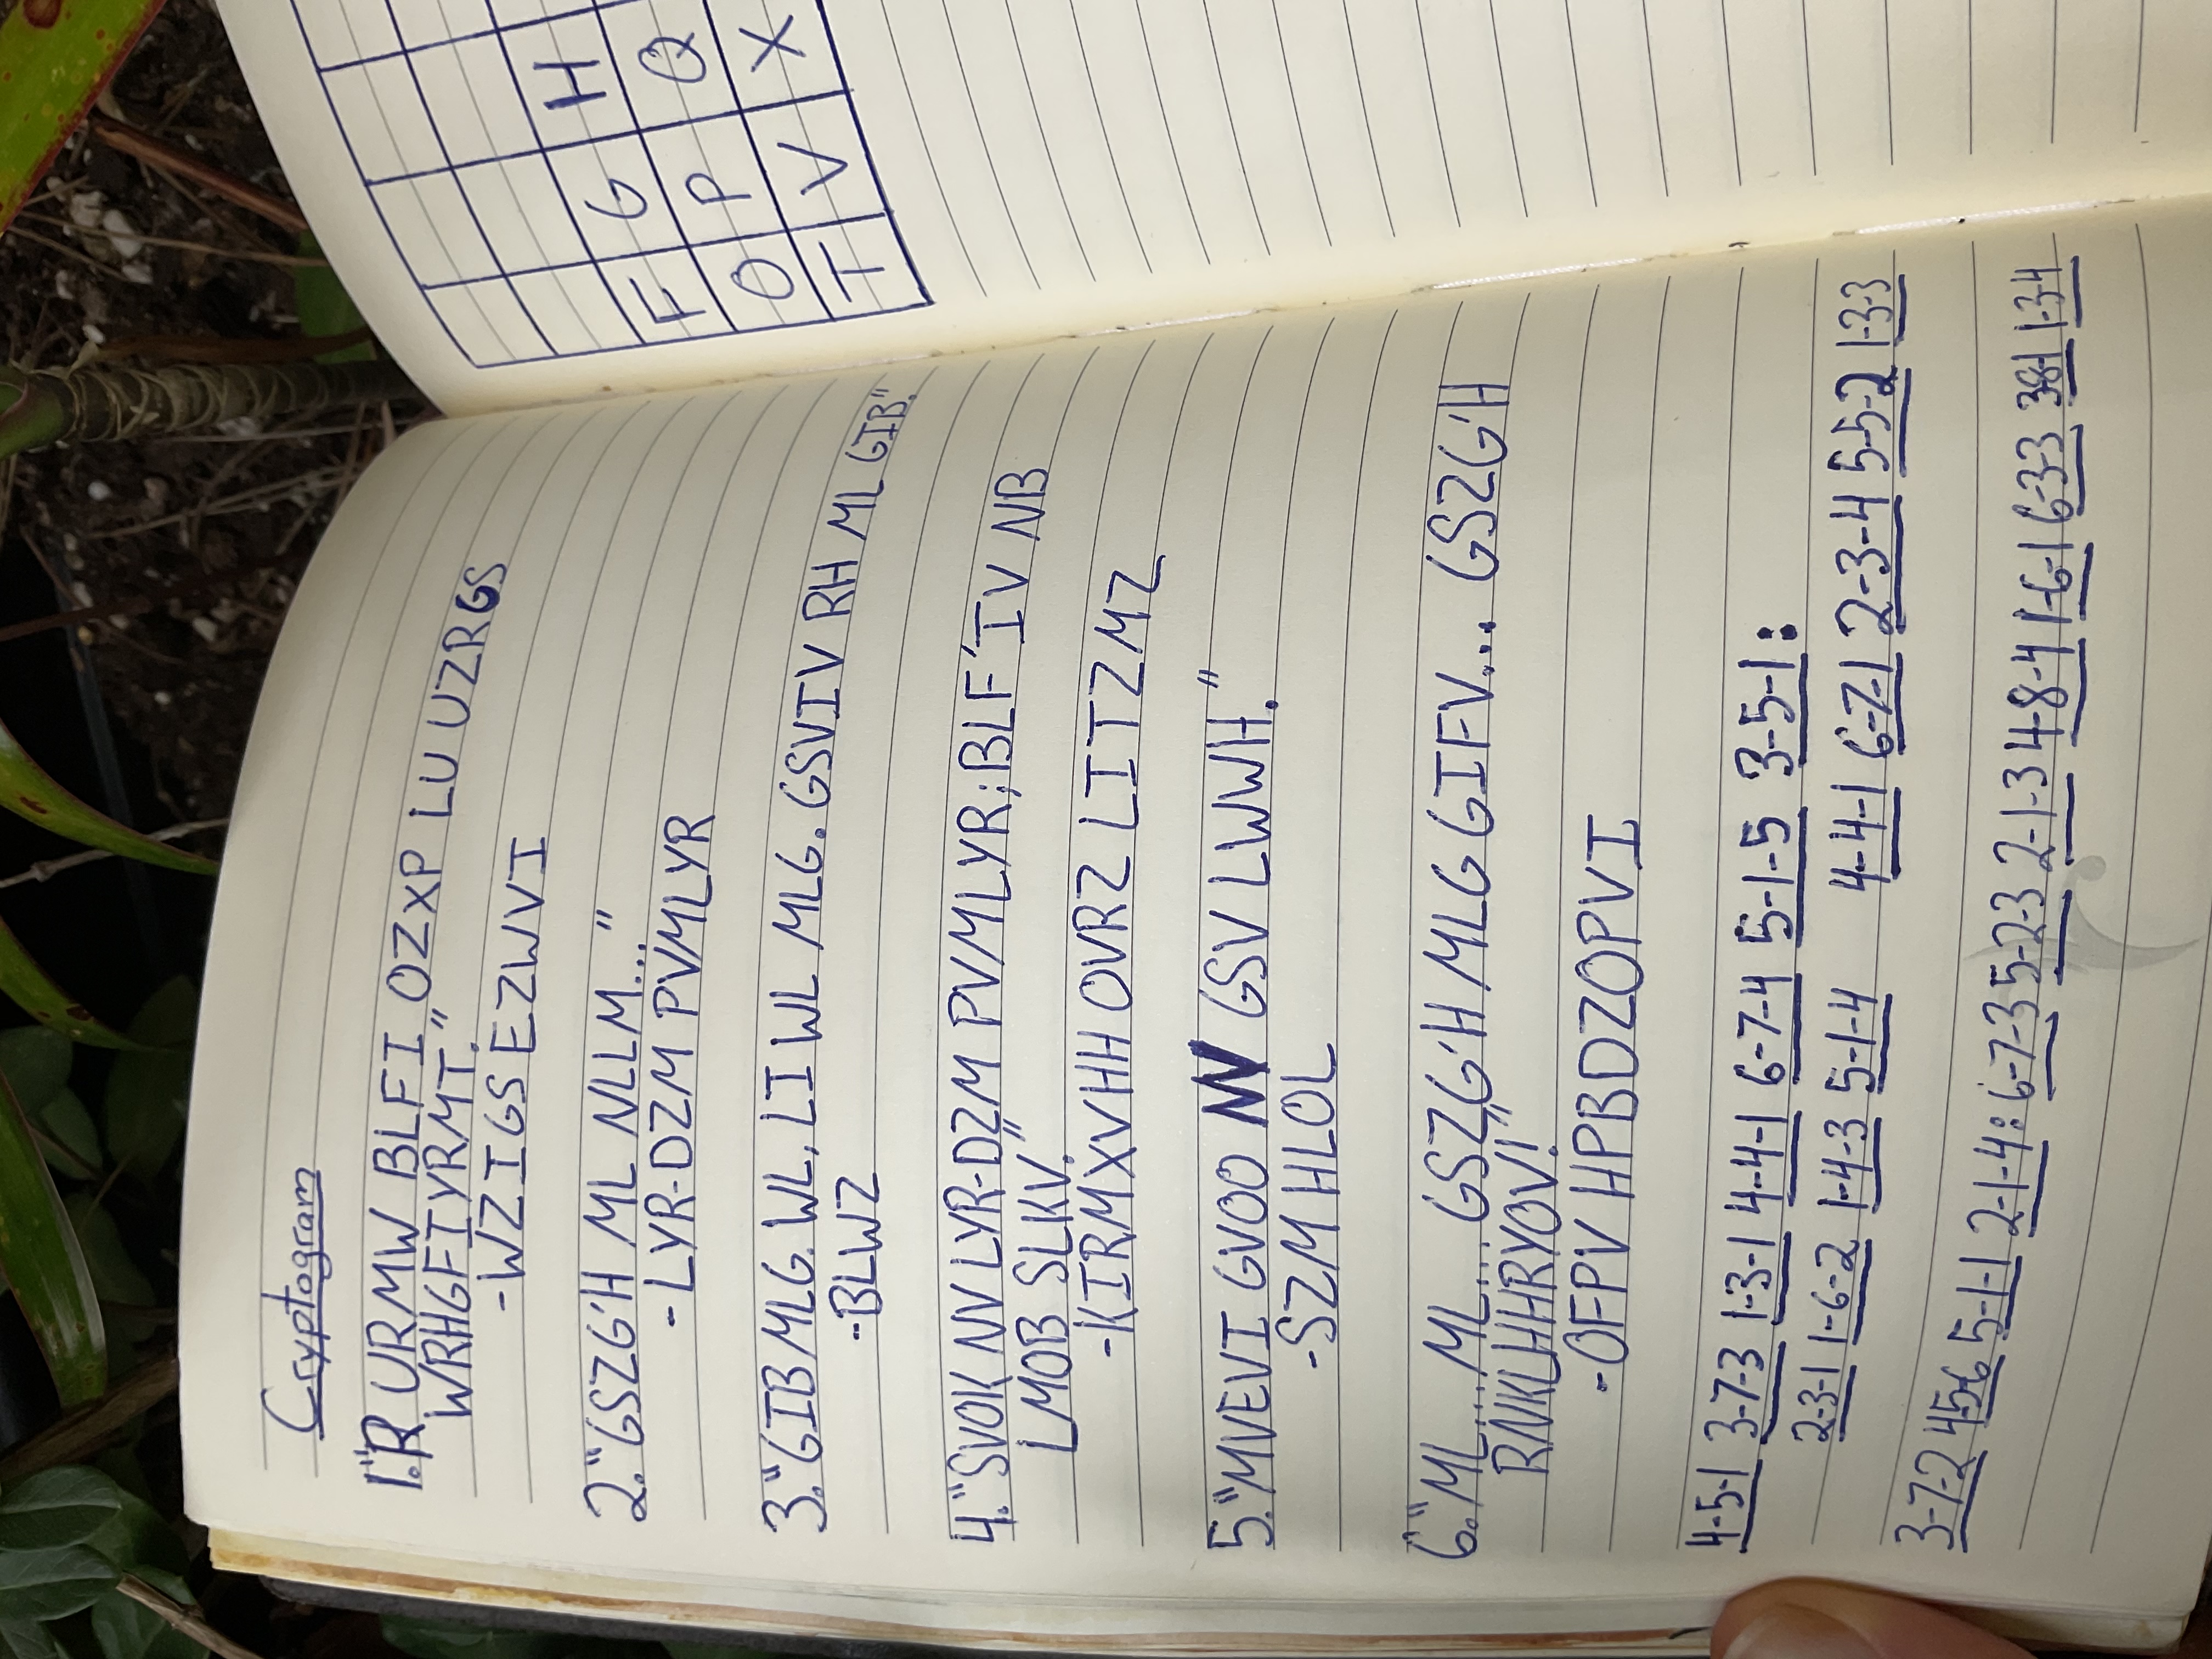 Cryptogram
1."R URMW BLFI OZXP LU UZRGS
WRHGFIYRMT."
-WZIGS EZWVI
2."GSZG'H ML NLLM..."
-LYR-DZM PVMLYR
3."GIB MLG. WL, LI WL MLG. GSVIV RH ML GIB."
-BLWZ
4."SVOK NV LYR-DZM PVMLYR; BLF'IV NB
LMOB SLKV."
-KIRMXVHH OVRZ LITZMZ
5."MVEVI GVOO NV GSV LWWH."
-SZM HLOL
6."ML... ML... GSZG'H MLG GIFV... GSZG'H
RNKLHHRYOV!"
-OFPV HPBDZOPVI
4-5-1 3-7-3 1-3-1 4-4-1 6-7-4 5-1-5 3-5-1:
2-3-1 1-6-2 1-4-3 5-1-4 4-4-1 6-7-1 2-3-4 5-5-2 1-3-3
3-7-2 4-5-6 5-1-1 2-1-4: 6-7-3 5-2-3 2-1-3 4-8-4 1-6-1 6-3-3 3-8-1 1-3-4
F G H
O P Q
T V X